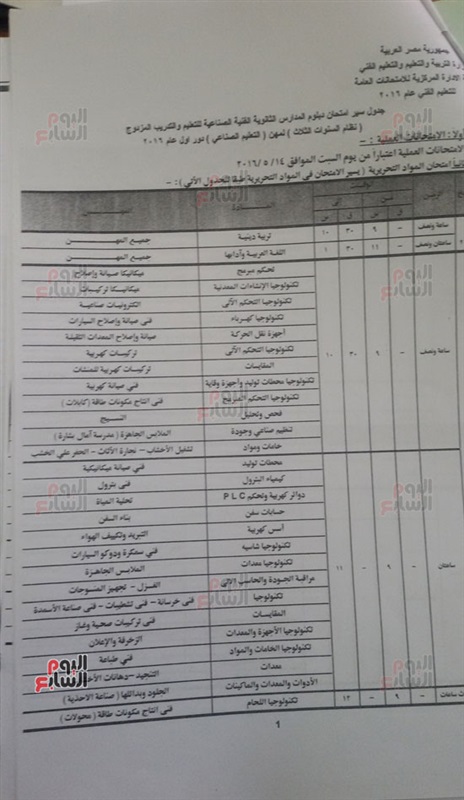 جمهورية مصر العربية
وزارة التربية والتعليم والتعليم الفني
الادارة المركزية للامتحانات العامة
للتعليم الفني عام ٢٠١٦
جدول سير امتحان دبلوم المدارس الثانوية الفنية الصناعية للتعليم والتدريب المزدوج
( نظام السنوات الثلاث ) لمهن ( التعليم الصناعي ) دور اول عام ٢٠١٦
اولا : الامتحانات العملية : –
الامتحانات العملية اعتباراً من يوم السبت الموافق ٢٠١٦/٥/١٤
امتحان المواد التحريرية ( يسير الامتحان في المواد التحريرية طبقا للجدول الآتي ) : –
الزمن من المادة المهن
ق س ق س
ساعة ونصف – ٩ ٣٠ ١٠ تربية دينية جميع المهن
ساعتان ونصف – ١١ ٣٠ ١ اللغة العربية وآدابها جميع المهن
ساعة ونصف – ٩ ٣٠ ١٠
تحكم مبرمج ميكانيكا صيانة وإصلاح
تكنولوجيا الإنشاءات المعدنية ميكانيكا تركيبات
تكنولوجيا التحكم الآلى الكترونيات صناعية
تكنولوجيا كهرباء فنى صيانة وإصلاح السيارات
أجهزة نقل الحركة صيانة وإصلاح المعدات الثقيلة
تكنولوجيا التحكم الآلى تركيبات كهربية
المقايسات تركيبات كهربية للمنشآت
تكنولوجيا محطات توليد وأجهزة وقاية فني صيانة كهربية
تكنولوجيا التحكم المبرمج فنى انتاج مكونات طاقة ( كابلات )
فحص وتحليل النسيج
تنظيم صناعي وجودة الملابس الجاهزة ( مدرسة آمال بشارة )
خامات ومواد تشغيل الأخشاب – نجارة الأثاث – الحفر على الخشب
ساعتان – ٩ – ١١
محطات توليد فني صيانة ميكانيكية
كيمياء البترول فنى بترول
دوائر كهربية وتحكم P L C تحلية المياة
حسابات سفن بناء السفن
أسس كهربية التبريد وتكييف الهواء
تكنولوجيا شاسيه فني سمكرة ودوكو السيارات
تكنولوجيا معدات الملابس الجاهزة
مراقبة الجودة والحاسب الآلى الغزل – تجهيز المنسوجات
تكنولوجيا فنى خرسانة – فنى تشطيبات – فنى صناعة الأسمدة
المقايسات فنى تركيبات صحية وغاز
تكنولوجيا الأجهزة والمعدات الزخرفة والإعلان
تكنولوجيا الخامات والمواد فني طباعة
معدات التنجيد – دهانات
الأدوات والمعدات والماكينات الجلود وبدائلها ( صناعة الاحذية )
ساعات – ٩ – ١٢ تكنولوجيا اللحام فنى انتاج مكونات طاقة ( محولات )
1
اليوم السابع